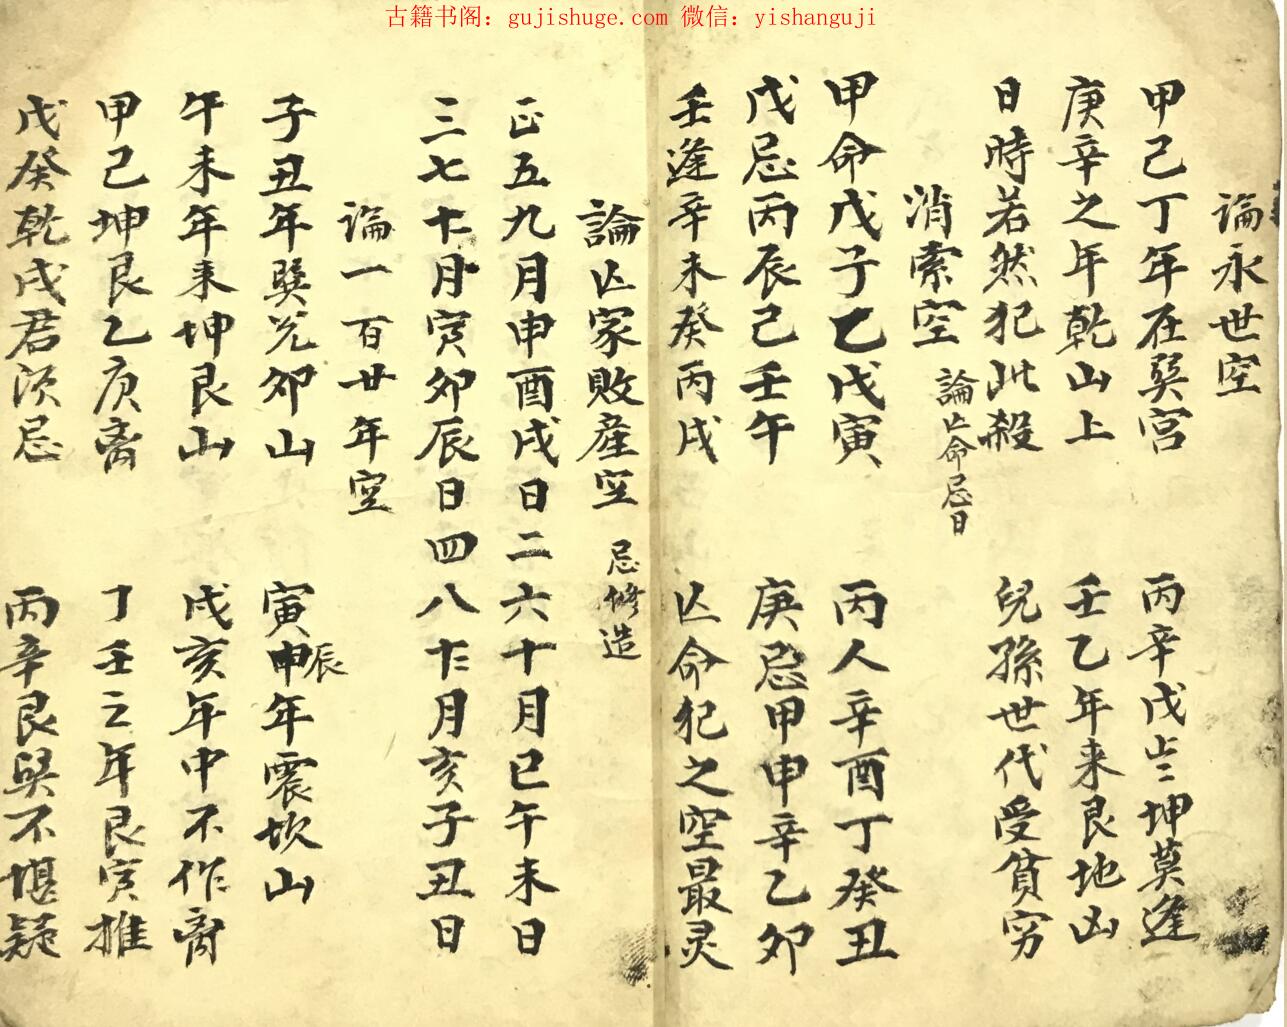 古籍书阁：gujishuge.com 微信：yishanguji
論永世空
甲己丁年在巽宫 丙辛戊 坤莫逢
庚辛之年乾山上 壬乙年来艮地凶
日時若然犯此殺 兒孫世代受貧穷
消索空 論亡命忌日
甲命戊子乙戊寅 丙人辛酉丁癸丑
戊忌丙辰己壬午 庚忌甲申辛乙卯
壬逢辛未癸丙戌 亡命犯之空最灵
論亡家敗産空 忌修造
正五九月申酉戌日二六十月巳午未日
三七十月寅卯辰日四八十二月亥子丑日
論一百廿年空
子丑年巽兑卯山 寅申辰年震坎山
午未年来坤艮山 戌亥年中不作离
甲己坤艮乙庚离 丁壬之年艮寅推
戊癸乾戌君须忌 丙辛艮巽不堪疑